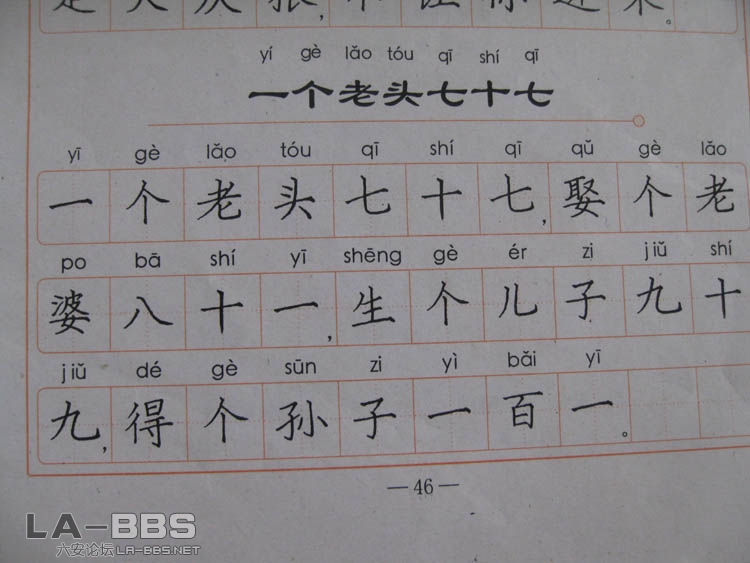 yí gè lǎo tóu qī shí qī
一个老头七十七
yī gè lǎo tóu qī shí qī qǔ gè lǎo
一个老头七十七,娶个老
po bā shí yī shēng gè ér zi jiǔ shí
婆八十一,生个儿子九十
jiǔ dé gè sūn zi yì bǎi yī
九,得个孙子一百一。
—46—
LA-BBS
六安论坛LA-BBS.NET